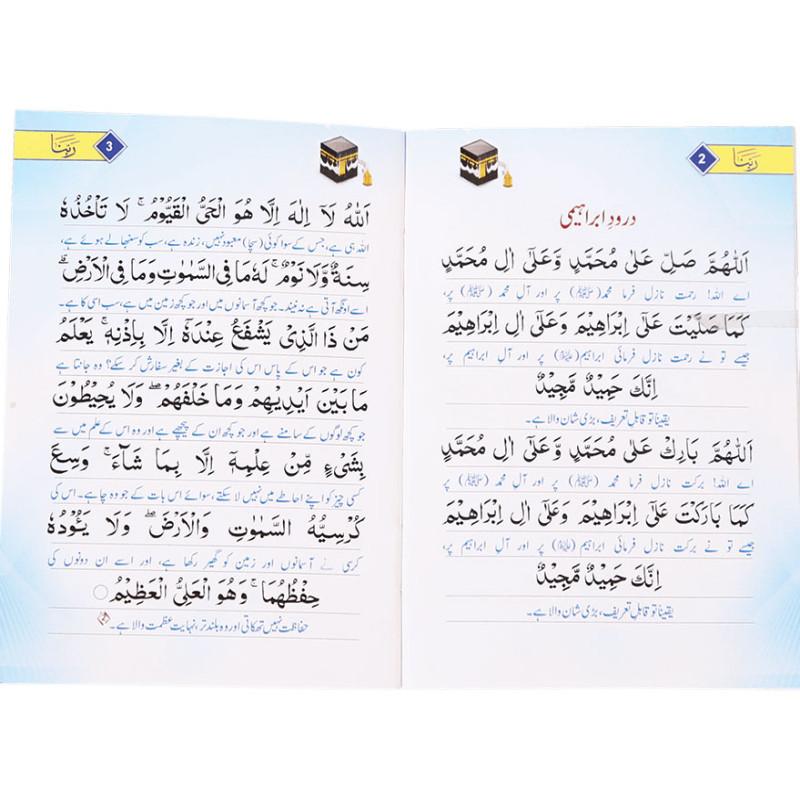 ربنا
2
درودِ ابراہیمی
اَللّٰهُمَّ صَلِّ عَلٰى مُحَمَّدٍ وَّعَلٰٓى اٰلِ مُحَمَّدٍ
اے اللہ! رحمت نازل فرما محمد (ﷺ) پر اور آلِ محمد (ﷺ) پر،
كَمَا صَلَّيْتَ عَلٰٓى اِبْرَاهِيْمَ وَعَلٰٓى اٰلِ اِبْرَاهِيْمَ
جیسے تو نے رحمت نازل فرمائی ابراہیم (علیہ السلام) پر اور آلِ ابراہیم پر،
اِنَّكَ حَمِيْدٌ مَّجِيْدٌ
یقیناً تو قابلِ تعریف، بڑی شان والا ہے۔
اَللّٰهُمَّ بَارِكْ عَلٰى مُحَمَّدٍ وَّعَلٰٓى اٰلِ مُحَمَّدٍ
اے اللہ! برکت نازل فرما محمد (ﷺ) پر اور آلِ محمد (ﷺ) پر،
كَمَا بَارَكْتَ عَلٰٓى اِبْرَاهِيْمَ وَعَلٰٓى اٰلِ اِبْرَاهِيْمَ
جیسے تو نے برکت نازل فرمائی ابراہیم (علیہ السلام) پر اور آلِ ابراہیم پر،
اِنَّكَ حَمِيْدٌ مَّجِيْدٌ
یقیناً تو قابلِ تعریف، بڑی شان والا ہے۔
3
ربنا
اَللّٰهُ لَآ اِلٰهَ اِلَّا هُوَ الْحَیُّ الْقَیُّوْمُ ۚ لَا تَاْخُذُهٗ
اللہ ہی ہے، جس کے سوا کوئی (سچا) معبود نہیں، زندہ ہے، سب کو سنبھالے ہوئے ہے،
سِنَةٌ وَّلَا نَوْمٌ ؕ لَهٗ مَا فِی السَّمٰوٰتِ وَمَا فِی الْاَرْضِ ؕ
اسے اونگھ آتی ہے نہ نیند۔ جو کچھ آسمانوں میں اور جو کچھ زمین میں ہے، سب اسی کا ہے۔
مَنْ ذَا الَّذِیْ یَشْفَعُ عِنْدَهٗٓ اِلَّا بِاِذْنِهٖ ؕ یَعْلَمُ
کون ہے جو اس کے پاس اس کی اجازت کے بغیر سفارش کر سکے؟ وہ جانتا ہے
مَا بَیْنَ اَیْدِیْهِمْ وَمَا خَلْفَهُمْ ۚ وَلَا یُحِیْطُوْنَ
جو کچھ لوگوں کے سامنے ہے اور جو کچھ ان کے پیچھے ہے اور وہ اس کے علم میں سے
بِشَیْءٍ مِّنْ عِلْمِهٖٓ اِلَّا بِمَا شَآءَ ۚ وَسِعَ
کسی چیز کو اپنے احاطے میں نہیں لا سکتے، سوائے اس بات کے جو وہ چاہے۔ اس کی
كُرْسِیُّهُ السَّمٰوٰتِ وَالْاَرْضَ ۚ وَلَا یَـُٔوْدُهٗ
کرسی نے آسمانوں اور زمین کو گھیر رکھا ہے، اور اسے ان دونوں کی
حِفْظُهُمَا ۚ وَهُوَ الْعَلِیُّ الْعَظِیْمُ ○
حفاظت نہیں تھکاتی اور وہ بلند تر، نہایت عظمت والا ہے۔